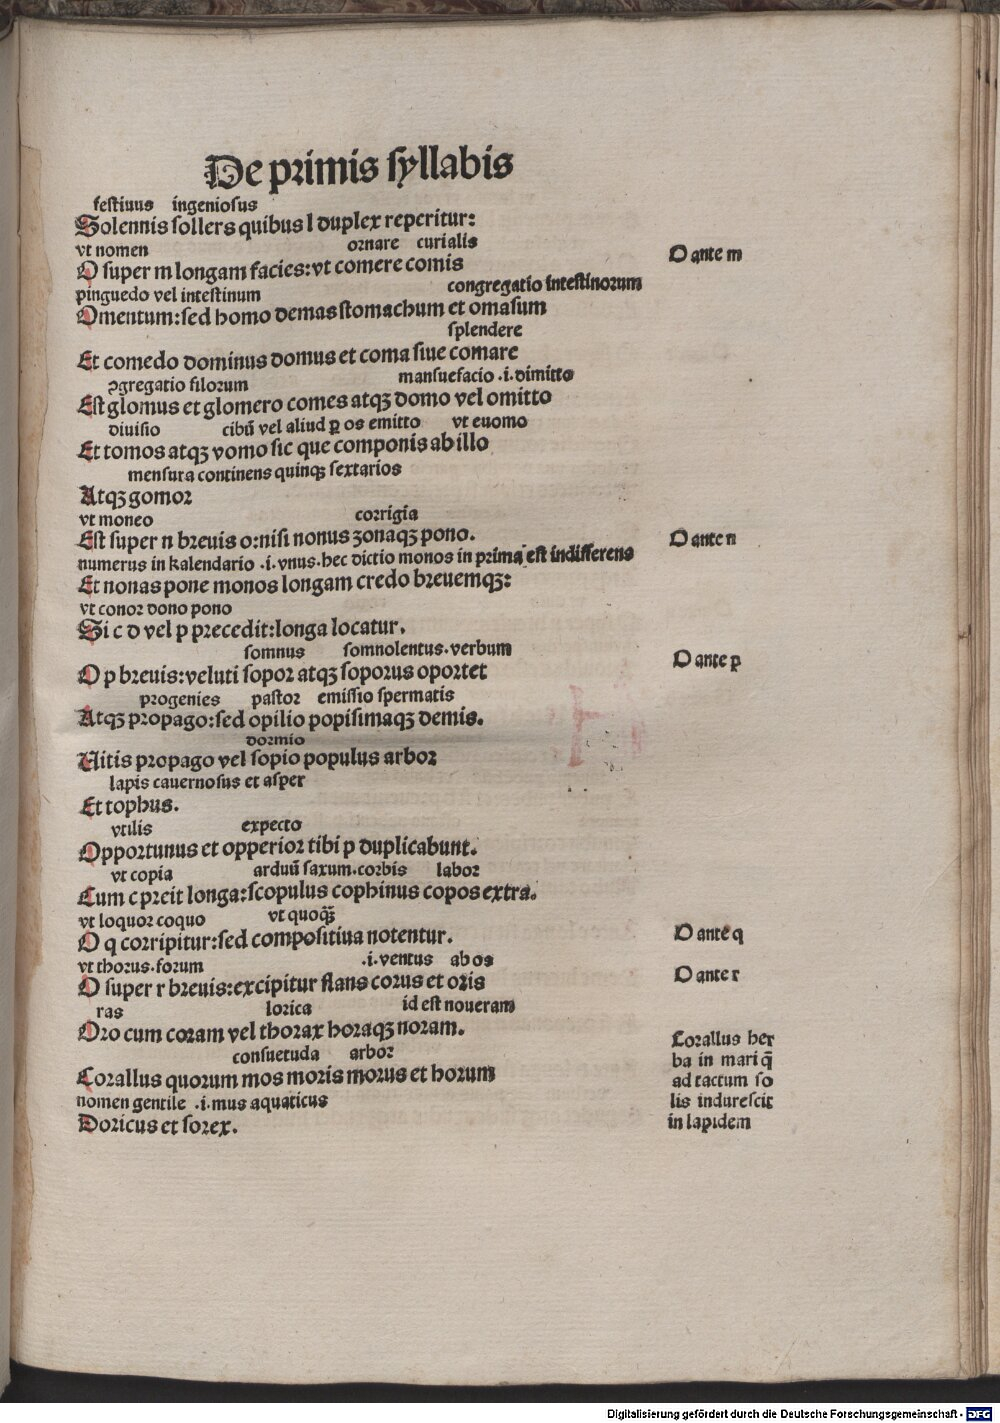 De primis syllabis
festiuus ingeniosus
Solennis sollers quibus l duplex reperitur:
vt nomen ornare curialis
O super m longam facies: vt comere comis
O ante m
pinguedo vel intestinum congregatio intestinorum
Omentum: sed homo demas stomachum et omasum
splendere
Et comedo dominus domus et coma siue comare
ꝯgregatio filorum mansuefacio .i. dimitto
Est glomus et glomero comes atqꝫ domo vel omitto
diuisio cibū vel aliud ꝑ os emitto vt euomo
Et tomos atqꝫ vomo sic que componis ab illo
mensura continens quinqꝫ sextarios
Atqꝫ gomor
vt moneo corrigia
Est super n breuis o: nisi nonus zonaqꝫ pono.
O ante n
numerus in kalendario .i. vnus. hec dictio monos in prima est indifferens
Et nonas pone monos longam credo breuemqꝫ:
vt conor dono pono
Si c d vel p precedit: longa locatur.
somnus somnolentus. verbum
O p breuis: veluti sopor atqꝫ soporus oportet
O ante p
progenies pastor emissio spermatis
Atqꝫ propago: sed opilio popisimaqꝫ demis.
dormio
Uitis propago vel sopio populus arbor
lapis cauernosus et asper
Et tophus.
vtilis expecto
Opportunus et opperior tibi p duplicabunt.
vt copia arduū saxum. corbis labor
Cum c preit longa: scopulus cophinus copos extra.
vt loquor coquo vt quoqꝫ
O q corripitur: sed compositiua notentur.
O ante q
vt thorus. forum .i. ventus ab os
O super r breuis: excipitur flans corus et oris
O ante r
ras lorica id est noueram
Oro cum coram vel thorax horaqꝫ noram.
consuetuda arbor
Corallus quorum mos moris morus et horum
nomen gentile .i. mus aquaticus
Doricus et sorex.
Corallus her
ba in mari q̄
ad tactum so
lis indurescit
in lapidem
Digitalisierung gefördert durch die Deutsche Forschungsgemeinschaft - DFG